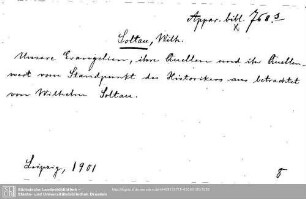 Appar. bibl. 760 s
x
Soltau, Wilh.
Unsere Evangelien, ihre Quellen und ihr Quellen-
wert vom Standpunkt des Historikers aus betrachtet
von Wilhelm Soltau.
Leipzig, 1901
8
Sächsische Landesbibliothek –
Staats- und Universitätsbibliothek Dresden